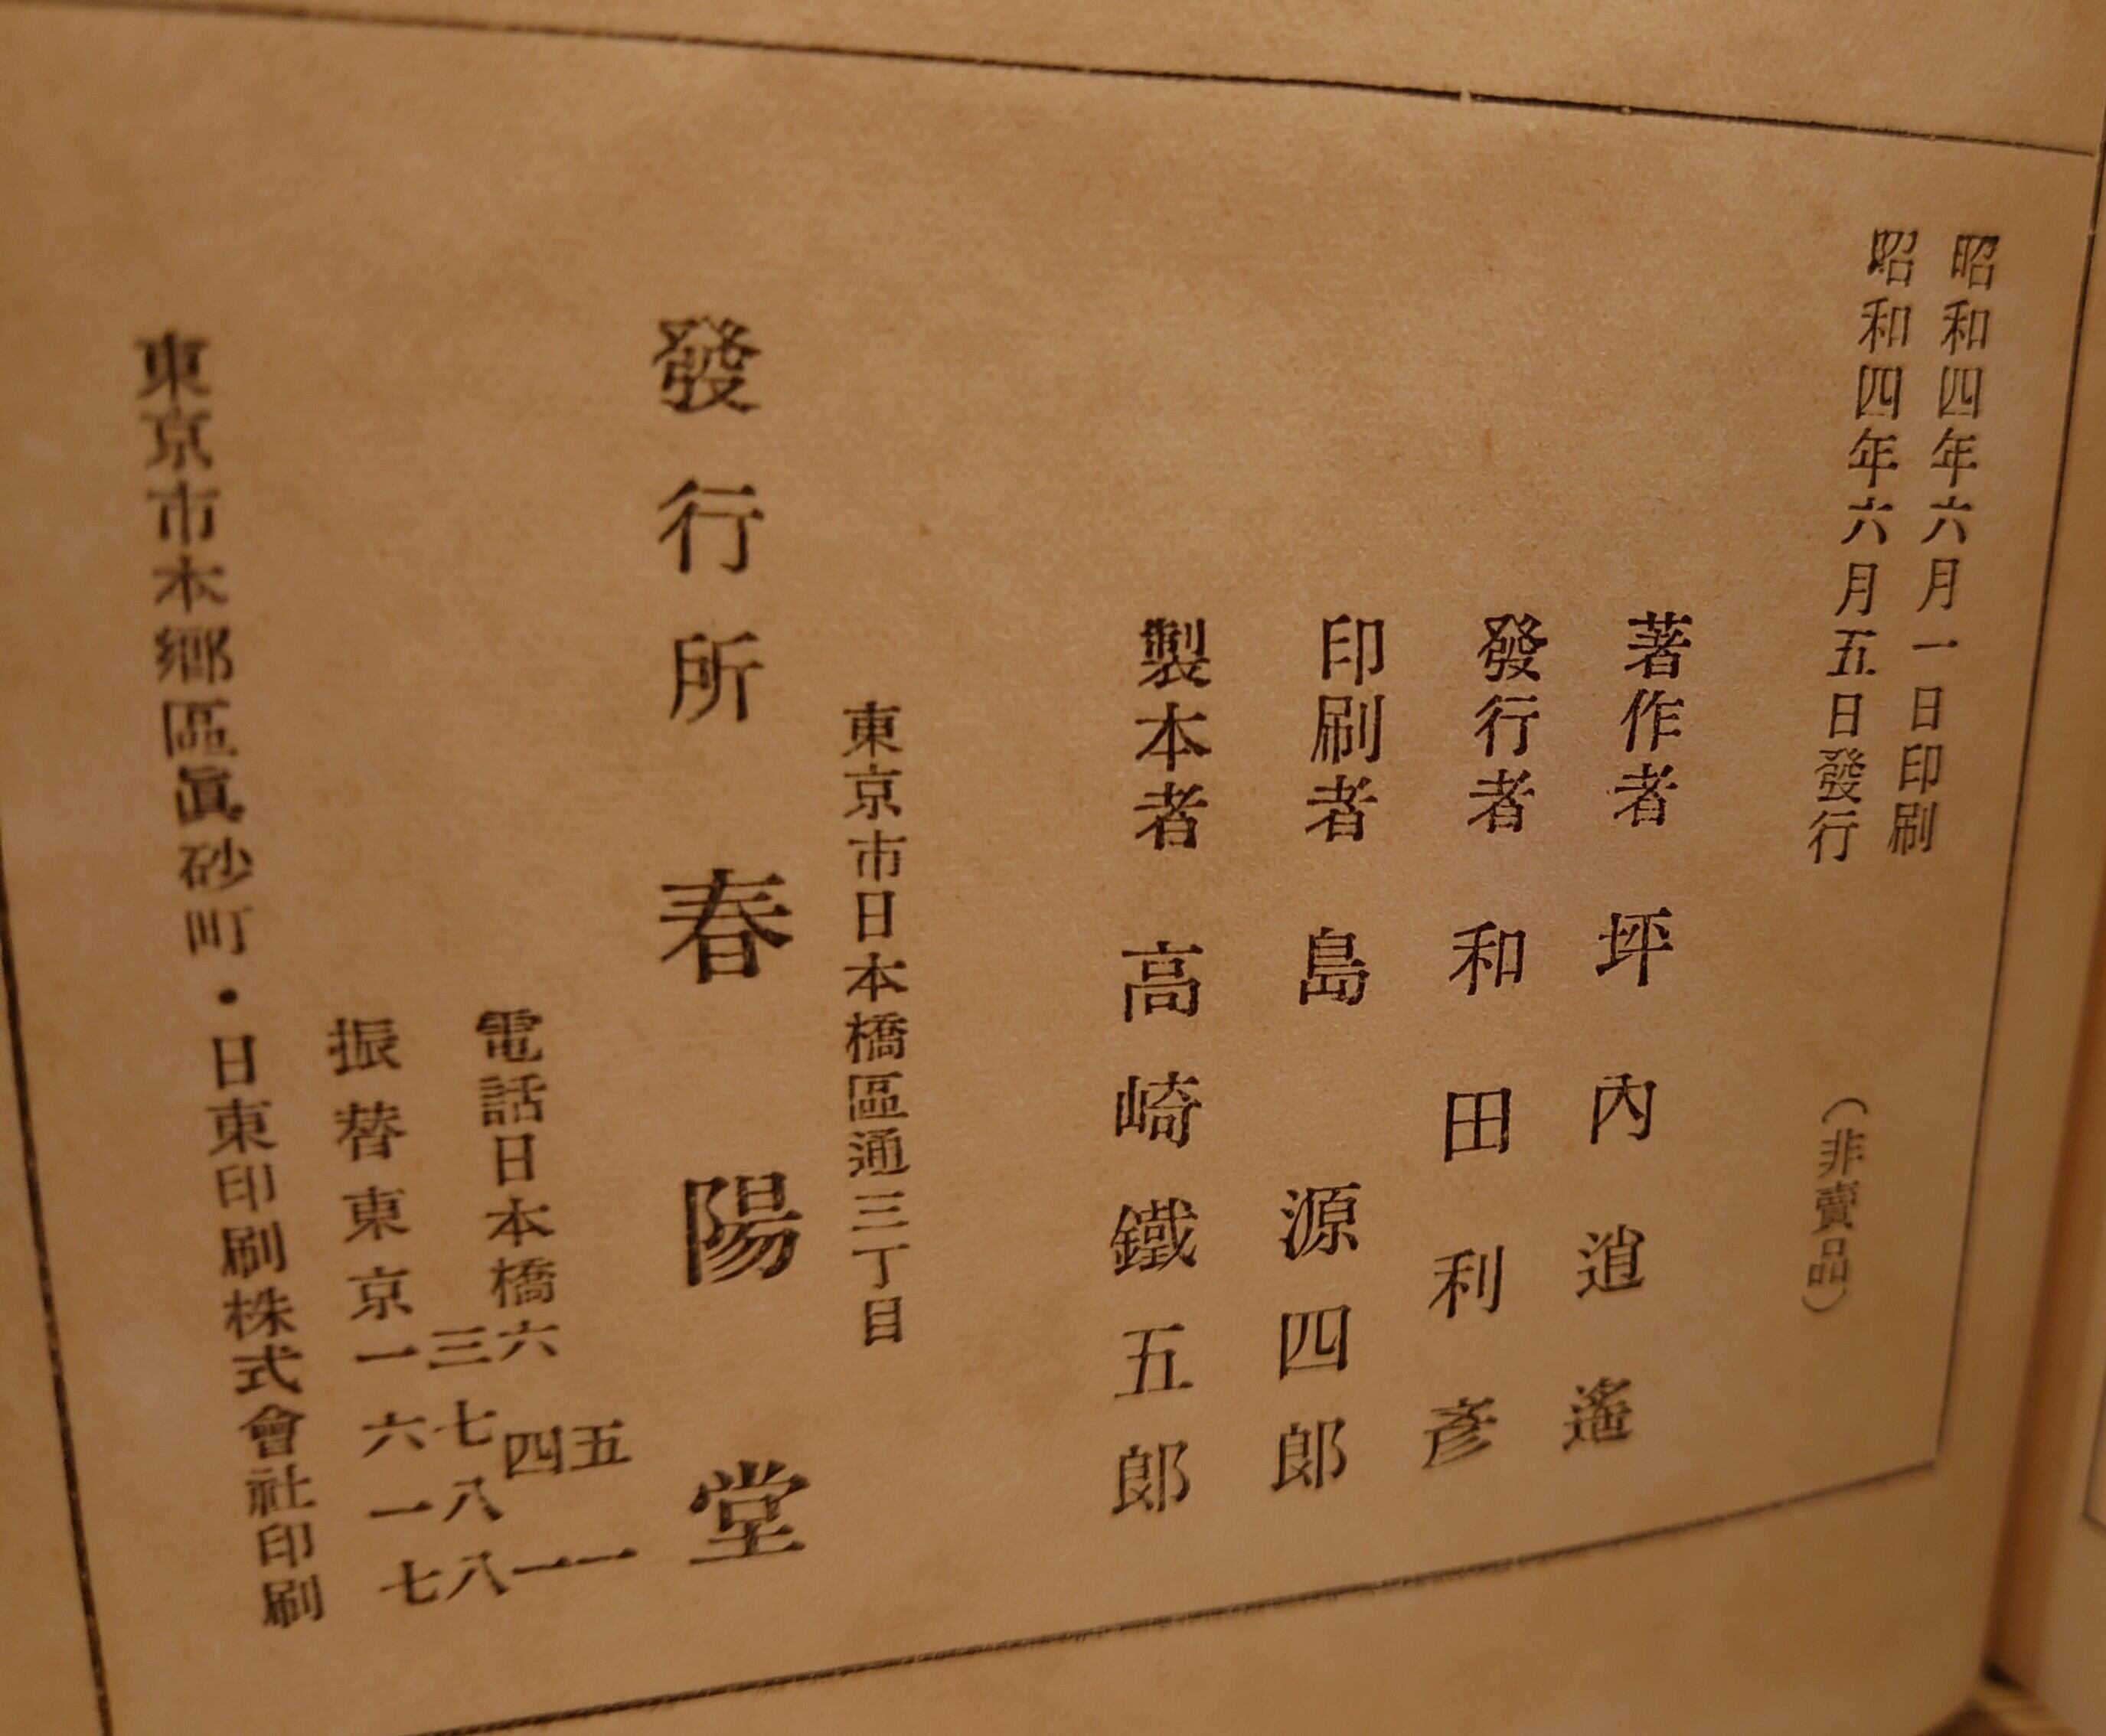 昭和四年六月一日印刷
昭和四年六月五日發行
（非賣品）
著作者 坪內逍遙
發行者 和田利彥
印刷者 島源四郞
製本者 高崎鐵五郞
東京市日本橋區通三丁目
發行所 春陽堂
五一
電話日本橋六四一
三七八八
振替東京一六一七
東京市本鄕區眞砂町・日東印刷株式會社印刷